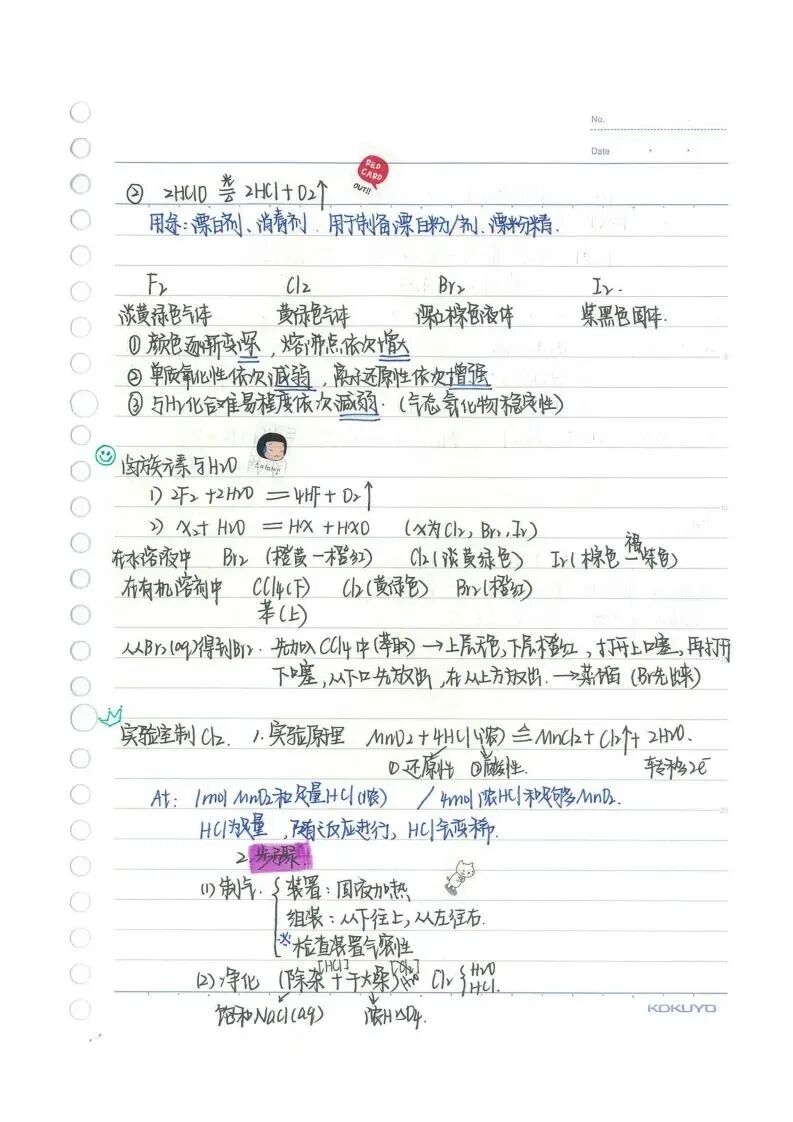 No.
Date
RED CARD
OUT!!
② 2HClO 光== 2HCl+O2↑
用途:漂白剂、消毒剂.用于制备漂白粉/剂、漂粉精.
F2 Cl2 Br2 I2.
淡黄绿色气体 黄绿色气体 深红棕色液体 紫黑色固体.
①颜色逐渐变深,熔沸点依次增大
②单质氧化性依次减弱,离子还原性依次增强
③与H2化合难易程度依次减弱.(气态氢化物稳定性)
卤族元素与H2O
1) 2F2+2H2O ══ 4HF+O2↑
2) X2+H2O ══ HX+HXO (X为Cl2, Br2, I2)
在水溶液中 Br2 (橙黄—橙红) Cl2(淡黄绿色) I2(棕色—褐紫色)
在有机溶剂中 CCl4(下) Cl2(黄绿色) Br2(橙红)
苯(上)
从Br2(aq)得到Br2.先加入CCl4中(萃取)→上层无色,下层橙红,打开上口塞,再打开
下口塞,从下口先放出,在从上方放出.→蒸馏(Br先出来)
实验室制Cl2. 1.实验原理 MnO2+4HCl(浓) ≙ MnCl2+Cl2↑+2H2O.
①还原性 ②酸性. 转移2e⁻
At: 1mol MnO2和足量HCl(浓) / 4mol浓HCl和足够多MnO2.
HCl为足量,随之反应进行,HCl气变稀.
2.步骤.
(1)制气.{装置:固液加热
组装:从下往上,从左往右.
※检查装置气密性
(2)净化 (除杂[HCl]+干燥) Cl2{H2O HCl.
饱和NaCl(aq) 浓H2SO4.
KOKUYO